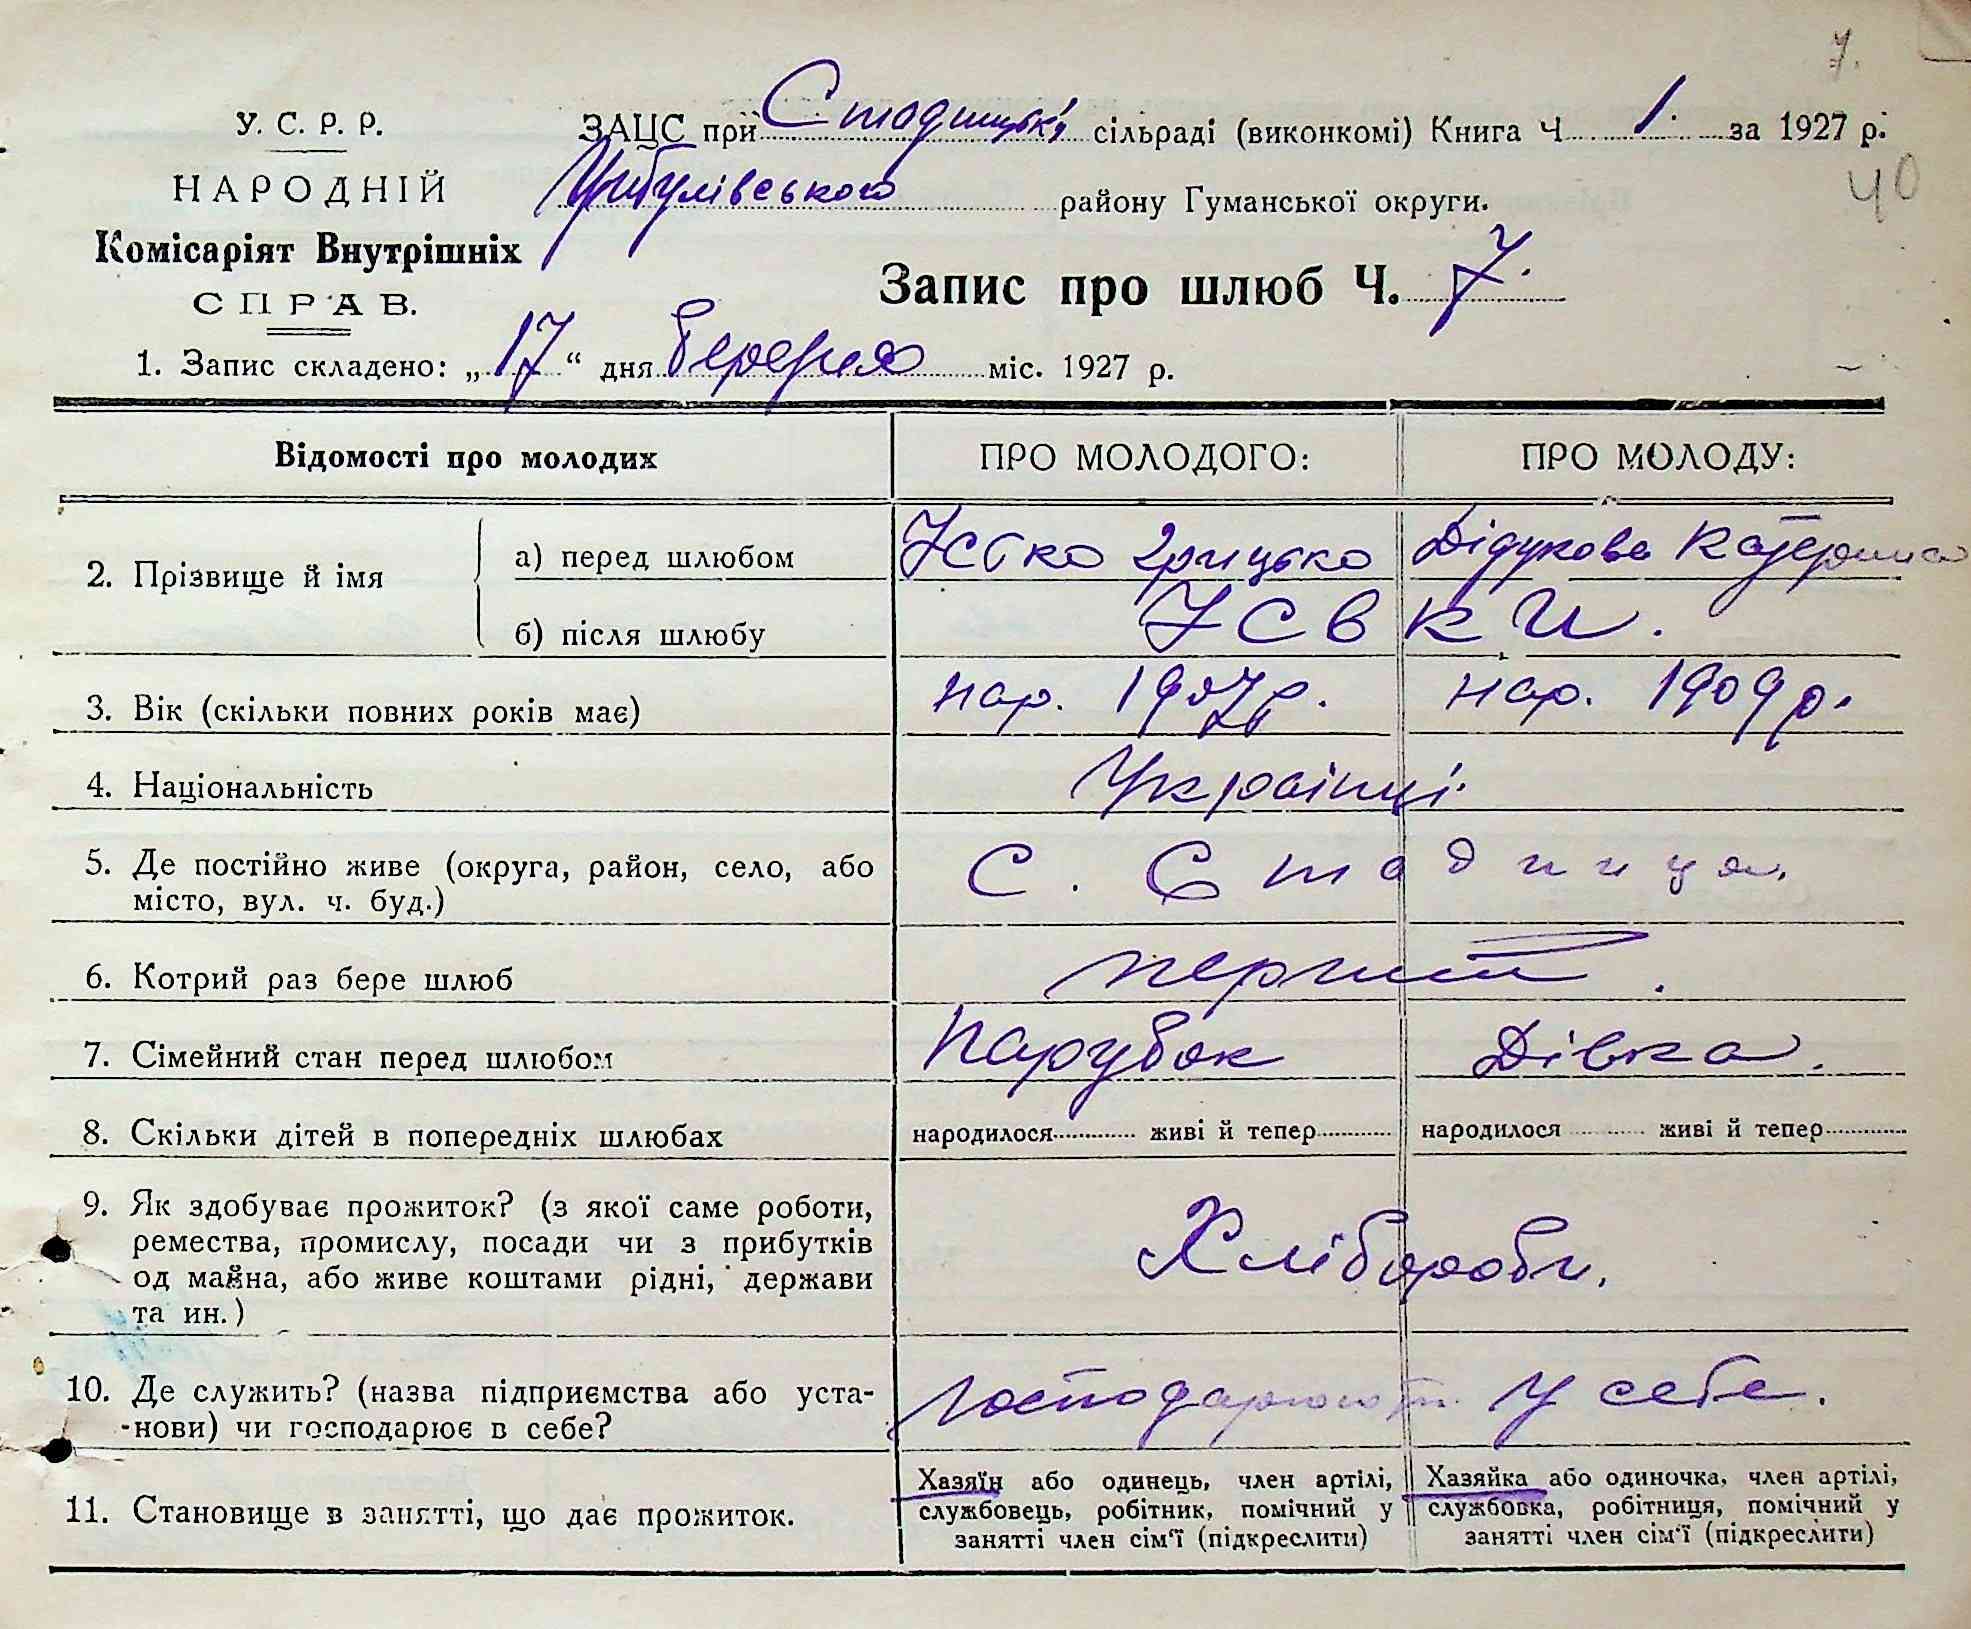 7.
У. С. Р. Р.
ЗАЦС при Стадницькій сільраді (виконкомі) Книга Ч 1. за 1927 р.
40
НАРОДНІЙ
Цибулівського району Гуманської округи.
Комісаріят Внутрішніх
СПРАВ.
Запис про шлюб Ч. 7.
1. Запис складено: „17“ дня березня міс. 1927 р.
Відомості про молодих
ПРО МОЛОДОГО:
ПРО МОЛОДУ:
2. Прізвище й імя
а) перед шлюбом
Усвко Грицько
Дідукова Катерина
б) після шлюбу
Усвки.
3. Вік (скільки повних років має)
нар. 1907 р.
нар. 1909 р.
4. Національність
Українці.
5. Де постійно живе (округа, район, село, або
місто, вул. ч. буд.)
С. Стадниця.
6. Котрий раз бере шлюб
перший.
7. Сімейний стан перед шлюбом
Парубок
Дівка.
8. Скільки дітей в попередніх шлюбах
народилося живі й тепер
народилося живі й тепер
9. Як здобуває прожиток? (з якої саме роботи,
ремества, промислу, посади чи з прибутків
од майна, або живе коштами рідні, держави
та ин.)
Хлібороби.
10. Де служить? (назва підприємства або уста-
нови) чи господарює в себе?
Господарюють у себе.
11. Становище в занятті, що дає прожиток.
Хазяїн або одинець, член артілі,
службовець, робітник, помічний у
занятті член сім'ї (підкреслити)
Хазяйка або одиночка, член артілі,
службовка, робітниця, помічний у
занятті член сім'ї (підкреслити)